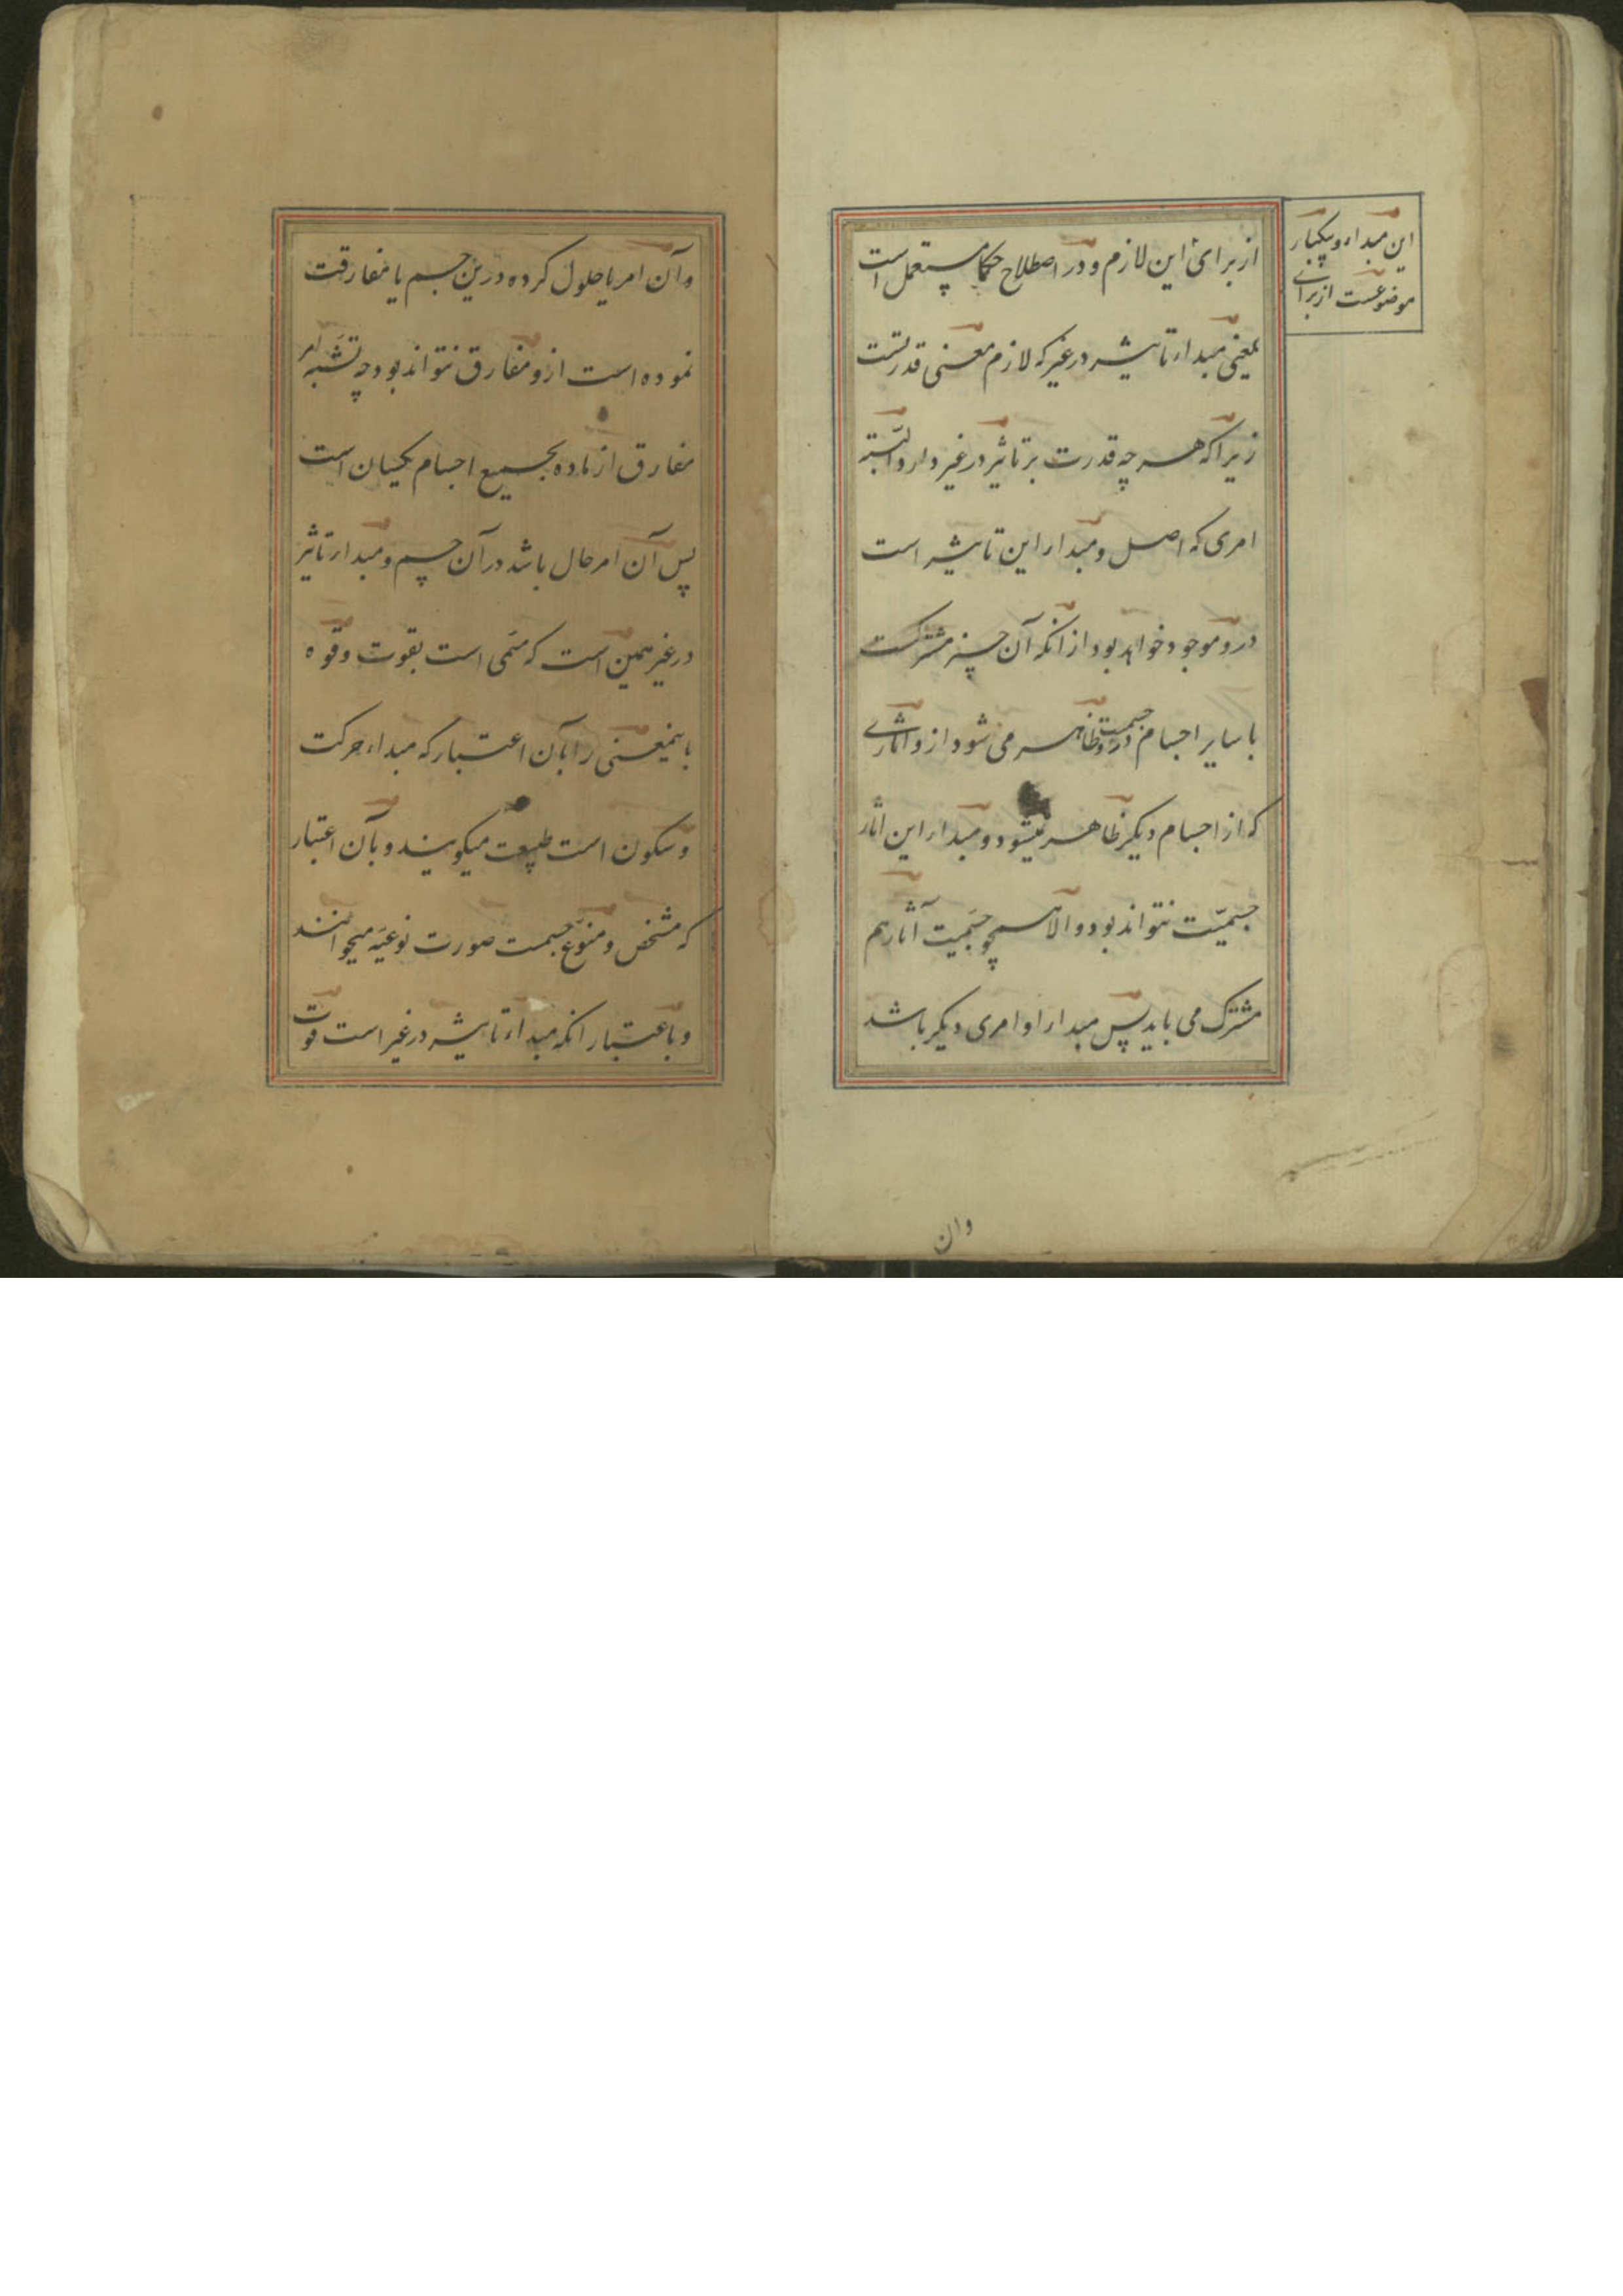 این مبداء و یکبار
موضوعست از برای
از برای این لازم و در اصطلاح حکما مستعمل است
بمعنی مبداء تاثیر در غیر که لازم معنی قدرتست
زیرا که هر چه قدرت بر تاثیر در غیر دارد البته
امری که اصل و مبداء این تاثیر است
درو موجود خواهد بود از آنکه آن چیز مشترکست
با سایر اجسام در جسمیت و ظاهر می شود ازو آثاری
که از اجسام دیگر ظاهر نمیشود و مبداء این آثار
جسمیّت نتواند بود و الا همچو جسمیت آثار هم
مشترک می باید پس مبداء او امری دیگر باشد
وان
و آن امر یا حلول کرده درین جسم یا مفارقت
نموده است ازو مفارق نتواند بود چه نسبة امر
مفارق از ماده بجمیع اجسام یکسان است
پس آن امر حال باشد در آن جسم و مبداء تاثیر
در غیر همین است که مسمی است بقوت و قوه
باینمعنی را بآن اعتبار که مبداء حرکت
و سکون است طبیعت میکویند و بآن اعتبار
که مشخص و منوّع جسمست صورت نوعیّه میخوانند
و باعتبار انکه مبداء تاثیر در غیر است قوت